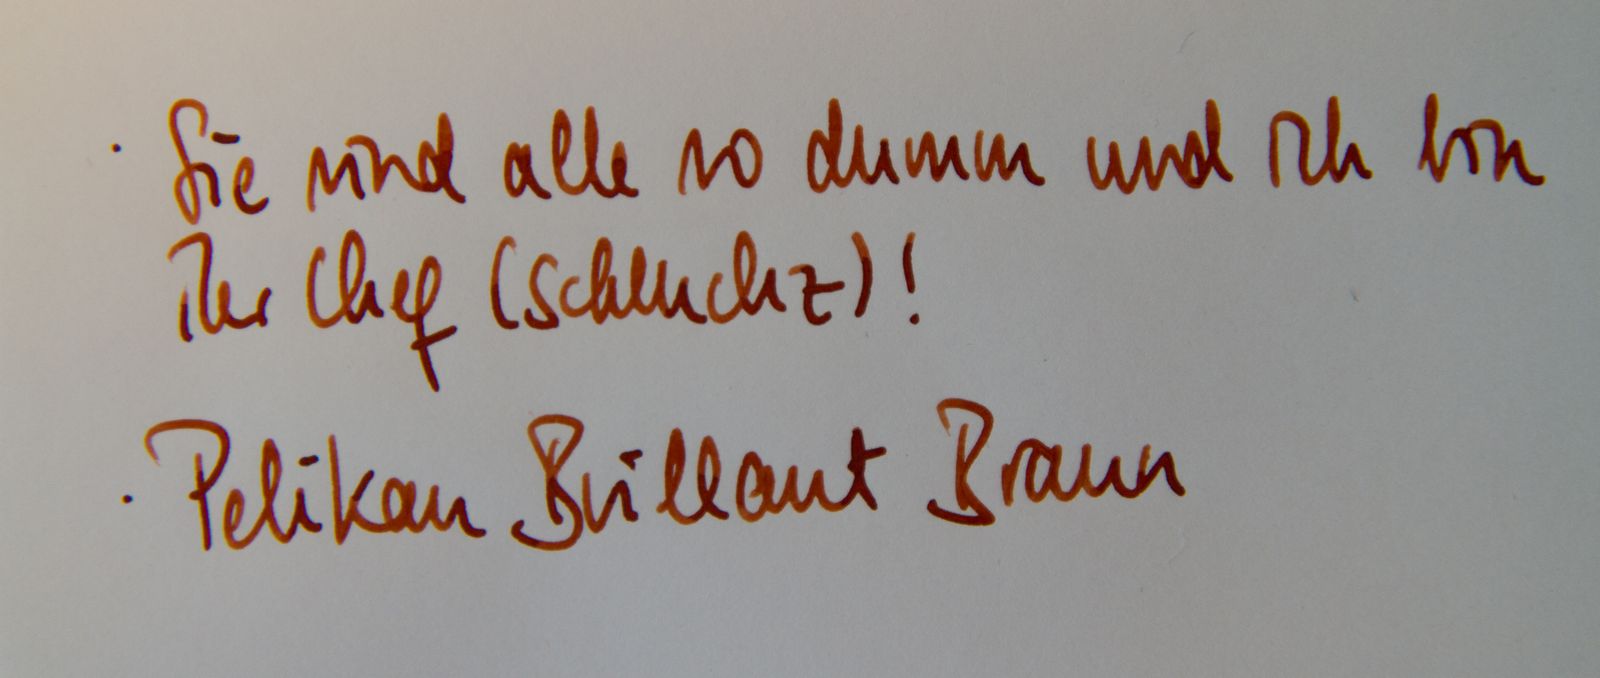 · Sie sind alle so dumm und ich bin
Ihr Chef (schluchz)!
· Pelikan Brillant Braun